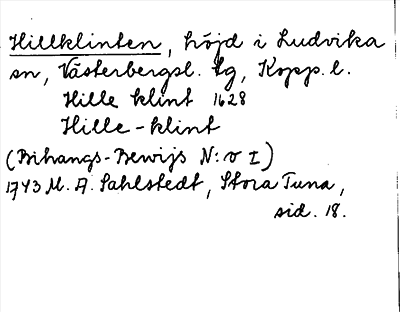 Hillklinten, höjd i Ludvika
sn, Västerbergsl. tg, Kopp. l.
Hille klint 1628
Hille-klint
(Bihangs-Bewijs N:o I)
1743 M. A. Sahlstedt, Stora Tuna,
sid. 18.